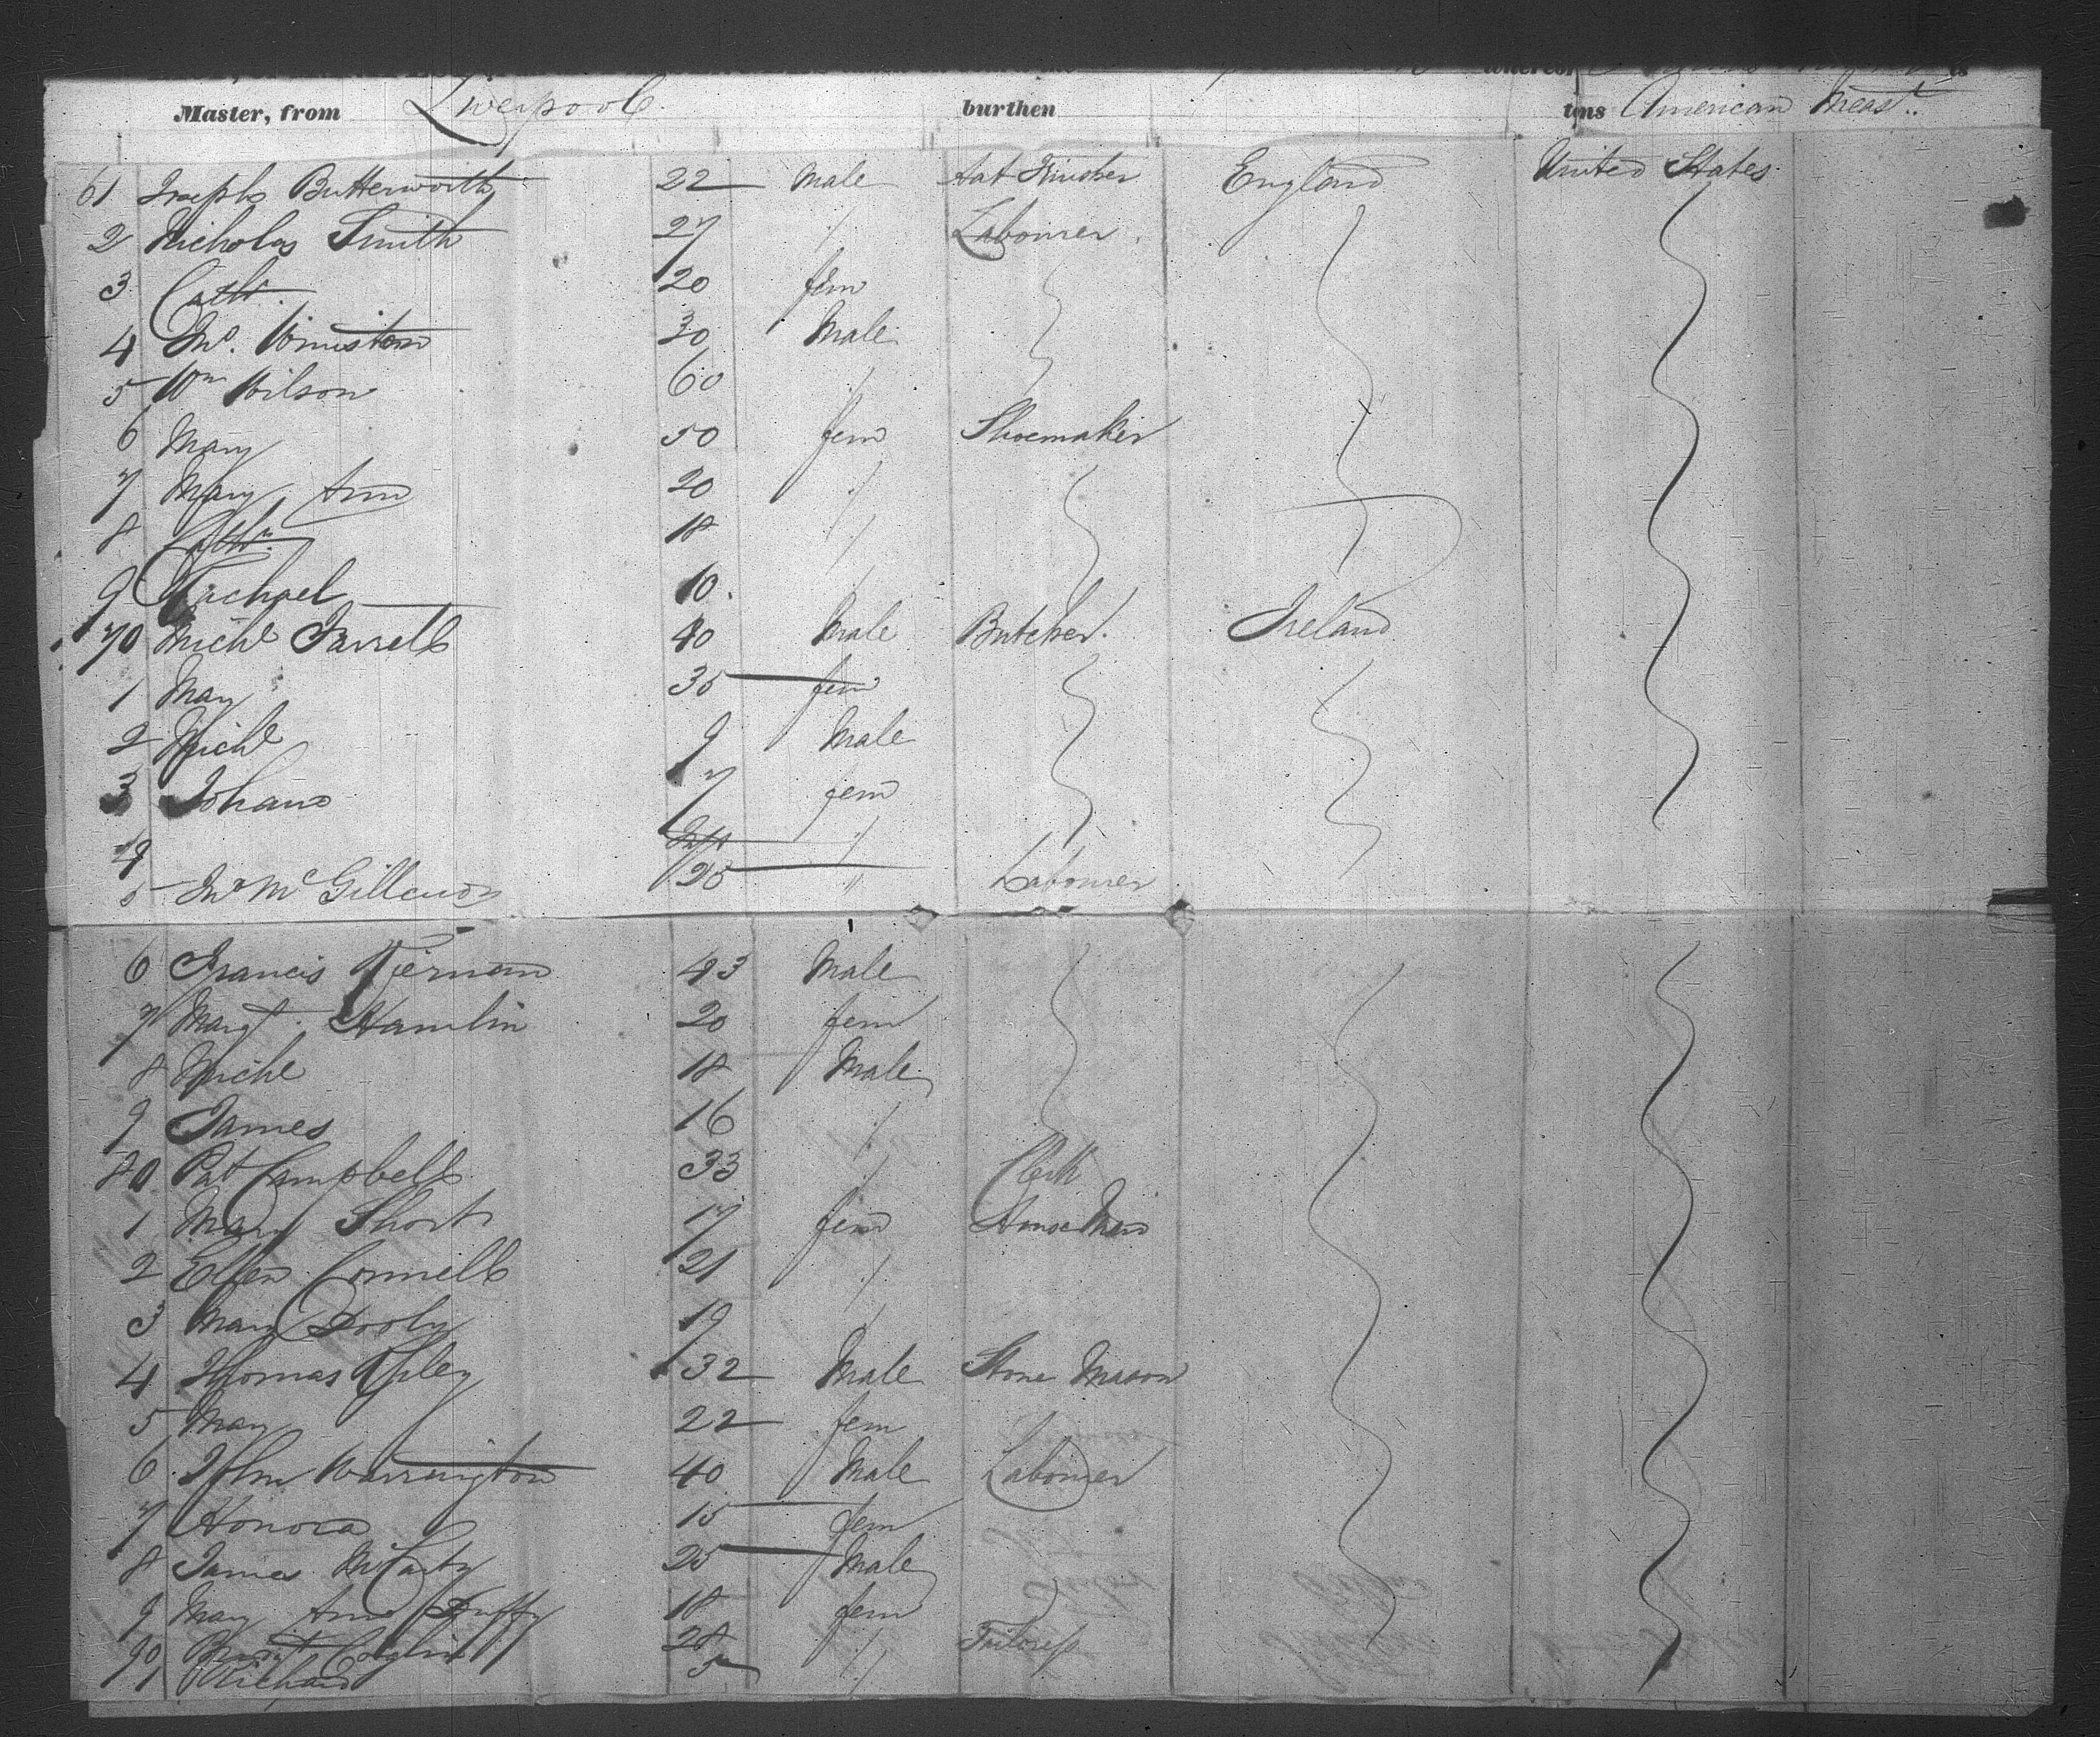 Master, from Liverpool burthen tons American Meast.
61 Joseph Butterworth 22 Male Hat Finisher England United States
2 Nicholas Smith 27 " Labourer
3 Cathe. 20 fem
4 Jno. 30 Male
5 Wm Wilson 60 "
6 Mary 50 fem Shoemaker
7 Mary Ann 20 "
8 Cathn. 18 "
9 Rachael 10.
70 Michl Farrell 40 Male Butcher. Ireland
1 Mary 35 fem
2 Michl 9 Male
3 Johana 7 fem
4 Inft "
5 Jno McGillcuddy 25 " Labourer
6 Francis Kiernan 43 Male
7 Margt. Hamlin 20 fem
8 Michl 18 Male
9 James 16 "
80 Pat Campbell 33 " Clerk
1 Mary Short 17 fem
2 Ellen Connell 21 "
3 Mary Dooly 19 "
4 Thomas Riley 32 Male Stone Mason
5 Mary 22 fem
6 John Warrington 40 Male Labourer
7 Honora 15 fem
8 James McCarty 25 Male
9 Mary Ann Duffy 18 fem
90 Coglin 28 " Tailoress
91 Richard 5 "